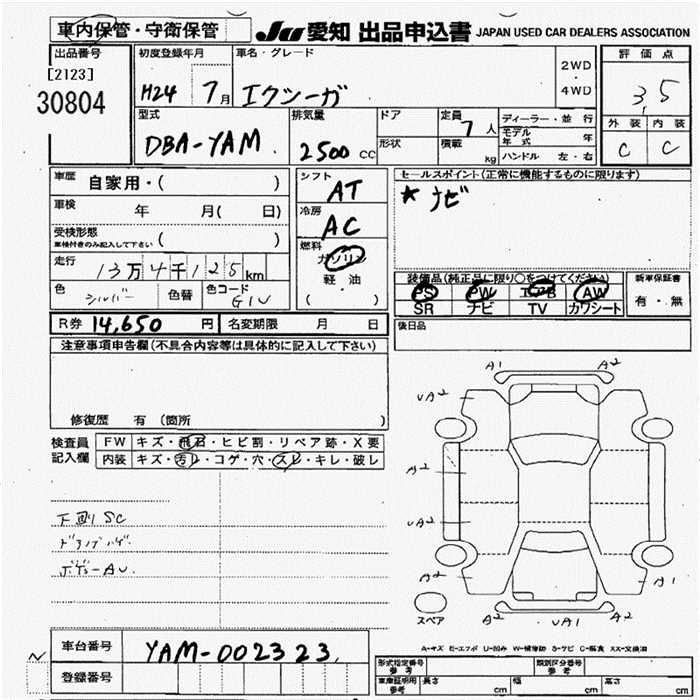 車内保管・守衛保管 JU 愛知 出品申込書 JAPAN USED CAR DEALERS ASSOCIATION
出品番号 初度登録年月 車名・グレード 2WD ・ 4WD 評価点
[2123]
30804 H24 7月 エクシーガ 3,5
型式 排気量 ドア 定員 7人 ディーラー・並行 外装 内装
DBA-YAM 2500cc 形状 積載 kg モデル年式 年 C C
ハンドル 左・右
車歴 自家用・( ) シフト AT セールスポイント(正常に機能するものに限ります)
車検 年 月( 日) 冷房 AC ★ナビ
受検形態 車検付きのみ記入して下さい ( ) 燃料 ガソリン
走行 13万4千125km 軽・油 装備品(純正品に限り○をつけてください) 新車保証書
色 シルバー 色替 色コード G1U ( ) PS PW エアB AW 有・無
SR ナビ TV カワシート
R券 14,650円 名変期限 月 日 後日品
注意事項申告欄(不具合内容等は具体的に記入して下さい)
修復歴 有 (箇所 )
検査員 FW キズ・飛石・ヒビ割・リペア跡・X要
記入欄 内装 キズ・汚レ・コゲ・穴・スレ・キレ・破レ
下廻りSC
ボデーAU.
A1 A2
UA2 A2
A2
UA2
A2 A1
スペア A2 UA1 A2
A-キズ E-エクボ U-凹み W-補修跡 S-サビ C-腐食 XX-交換済
車台番号 YAM-002323
登録番号
形式指定番号 参考 類別区分番号 参考
車庫証明用 参考 長さ cm 幅 cm 高さ cm